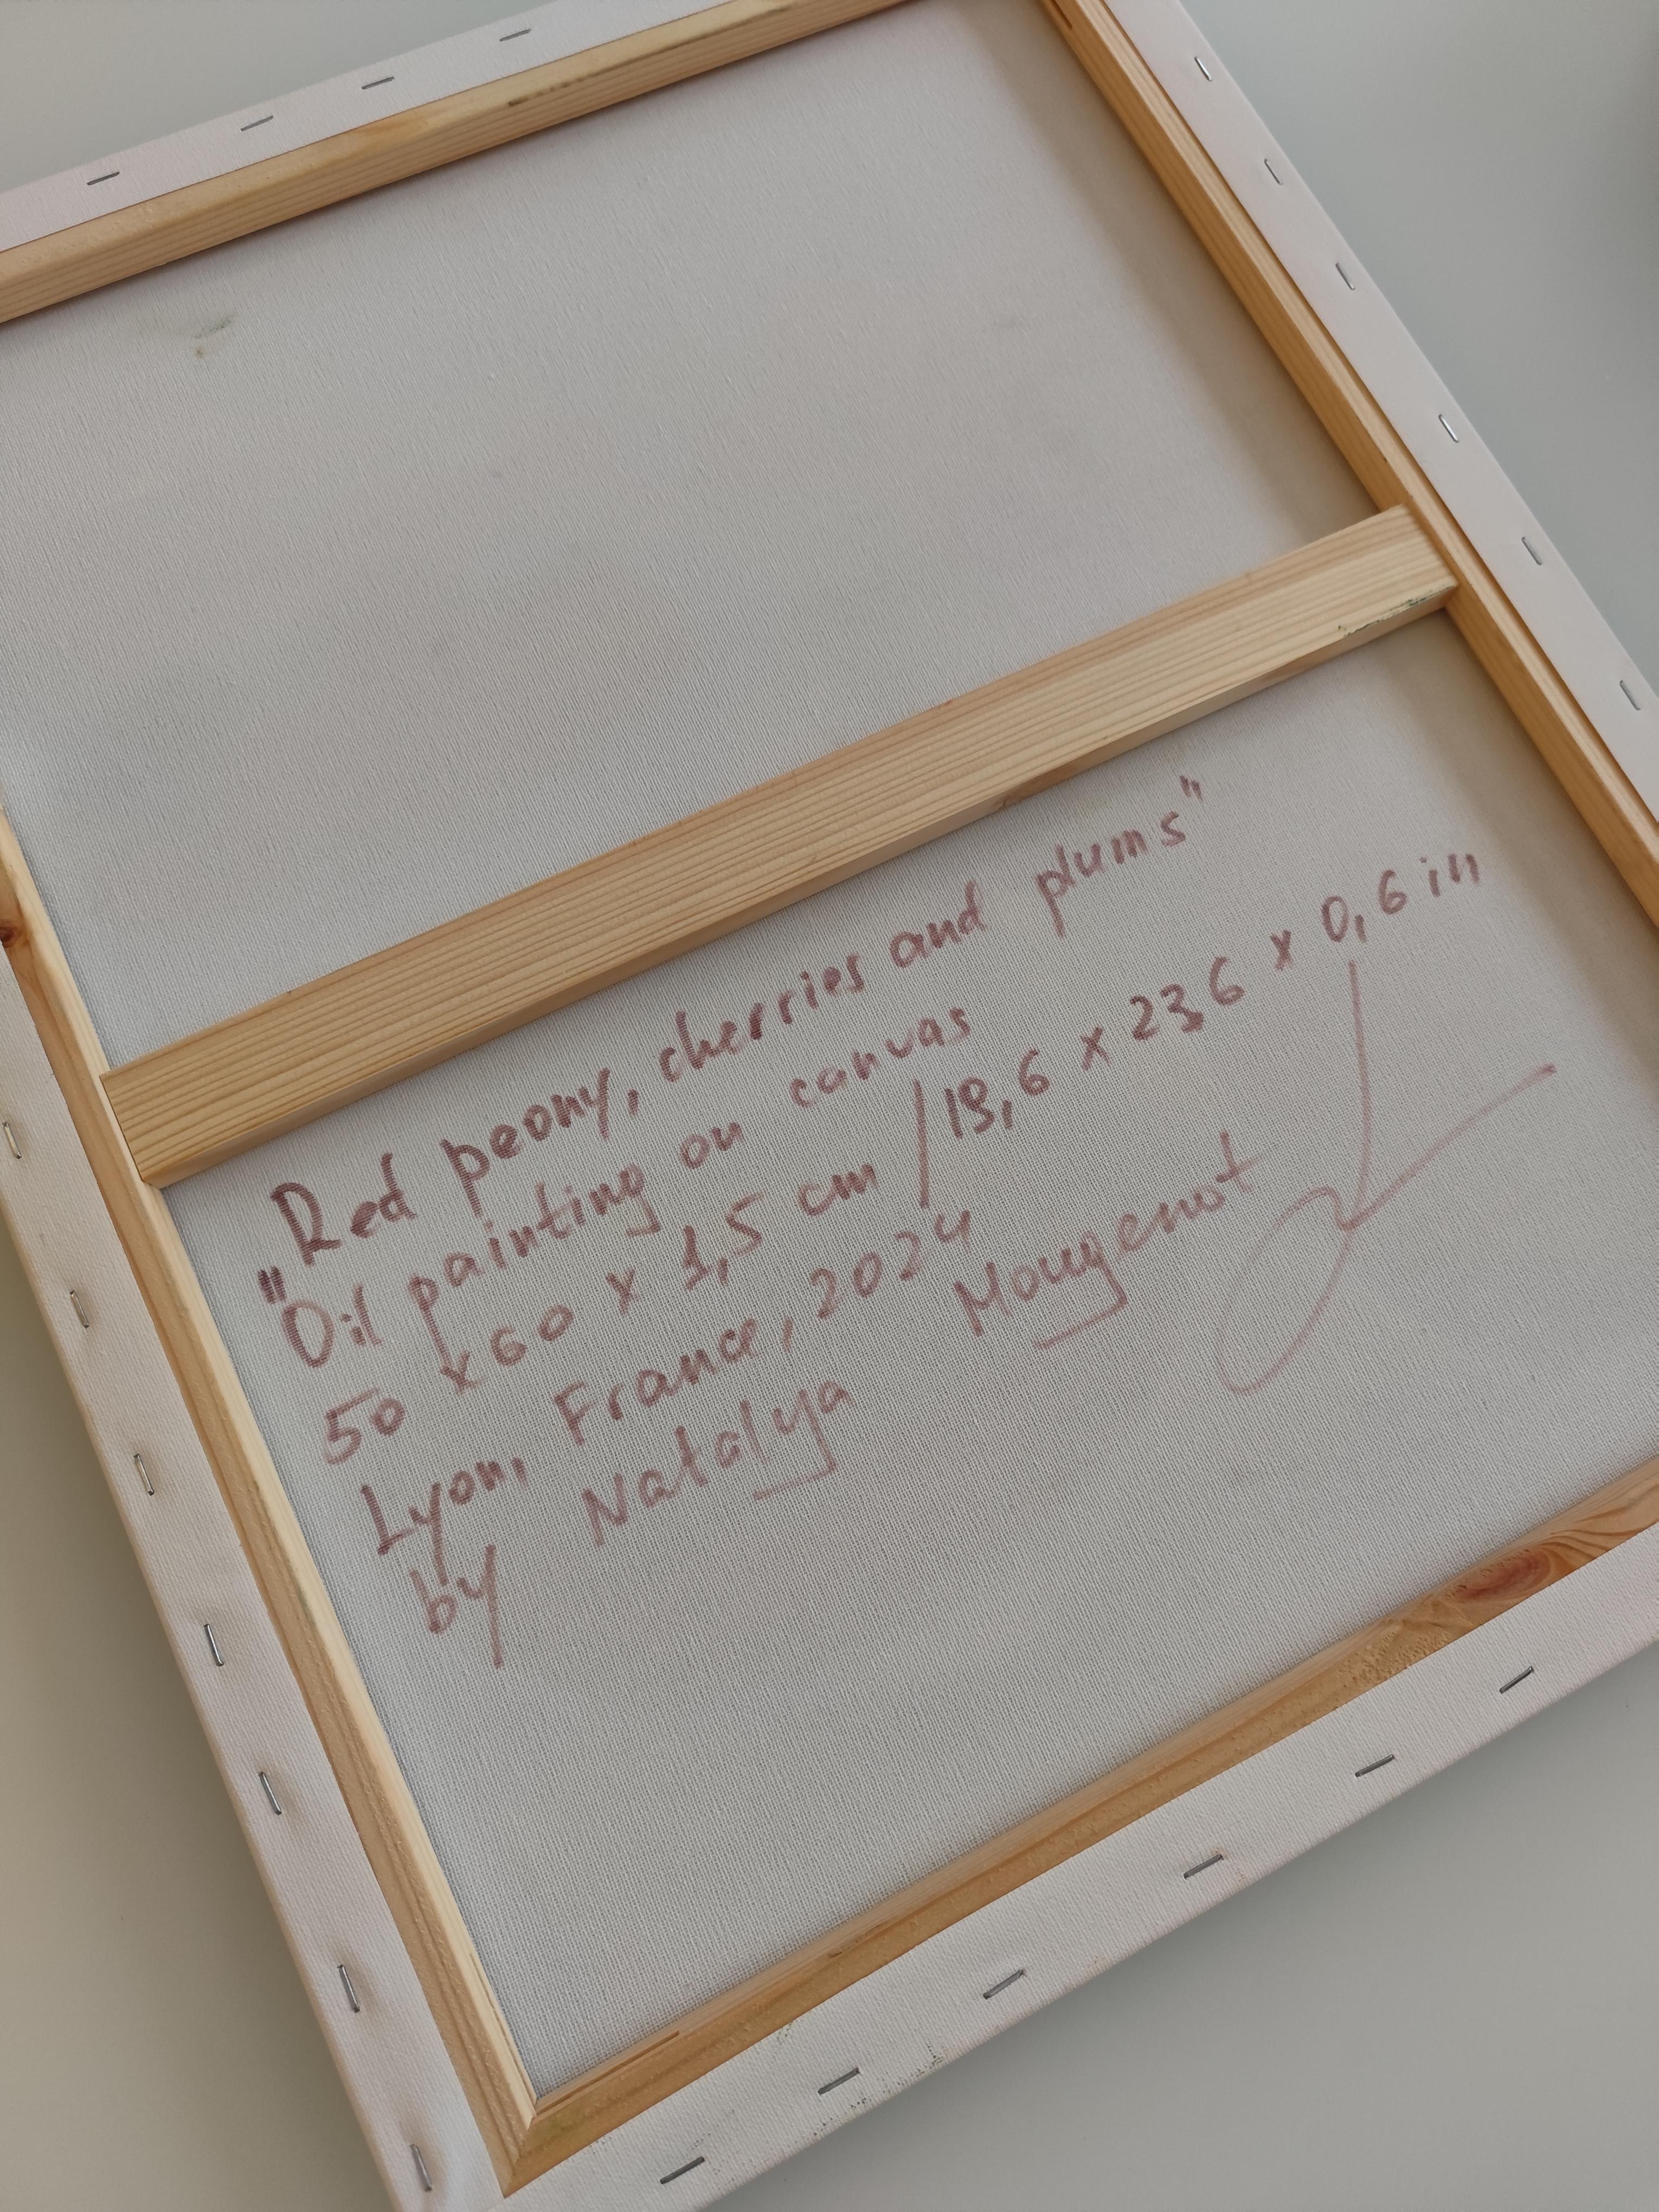 "Red peony, cherries and plums"
Oil painting on canvas
50 x 60 x 1,5 cm / 19,6 x 23,6 x 0,6 in
Lyon, France, 2024
by Natalya Mougenot